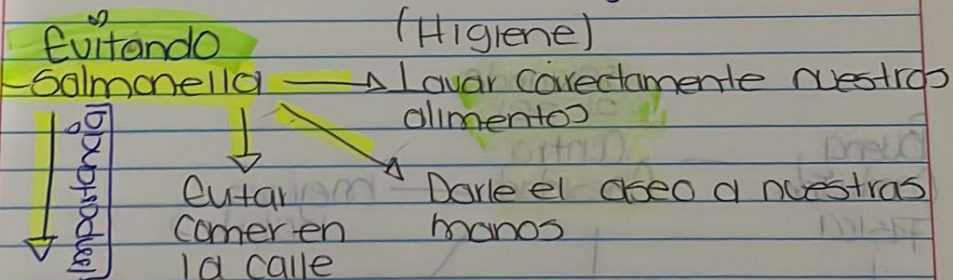 Evitando
(Higiene)
Salmonella → Lavar correctamente nuestros
alimentos
Importancia
Evitar
comer en
la calle
Darle el aseo a nuestras
manos